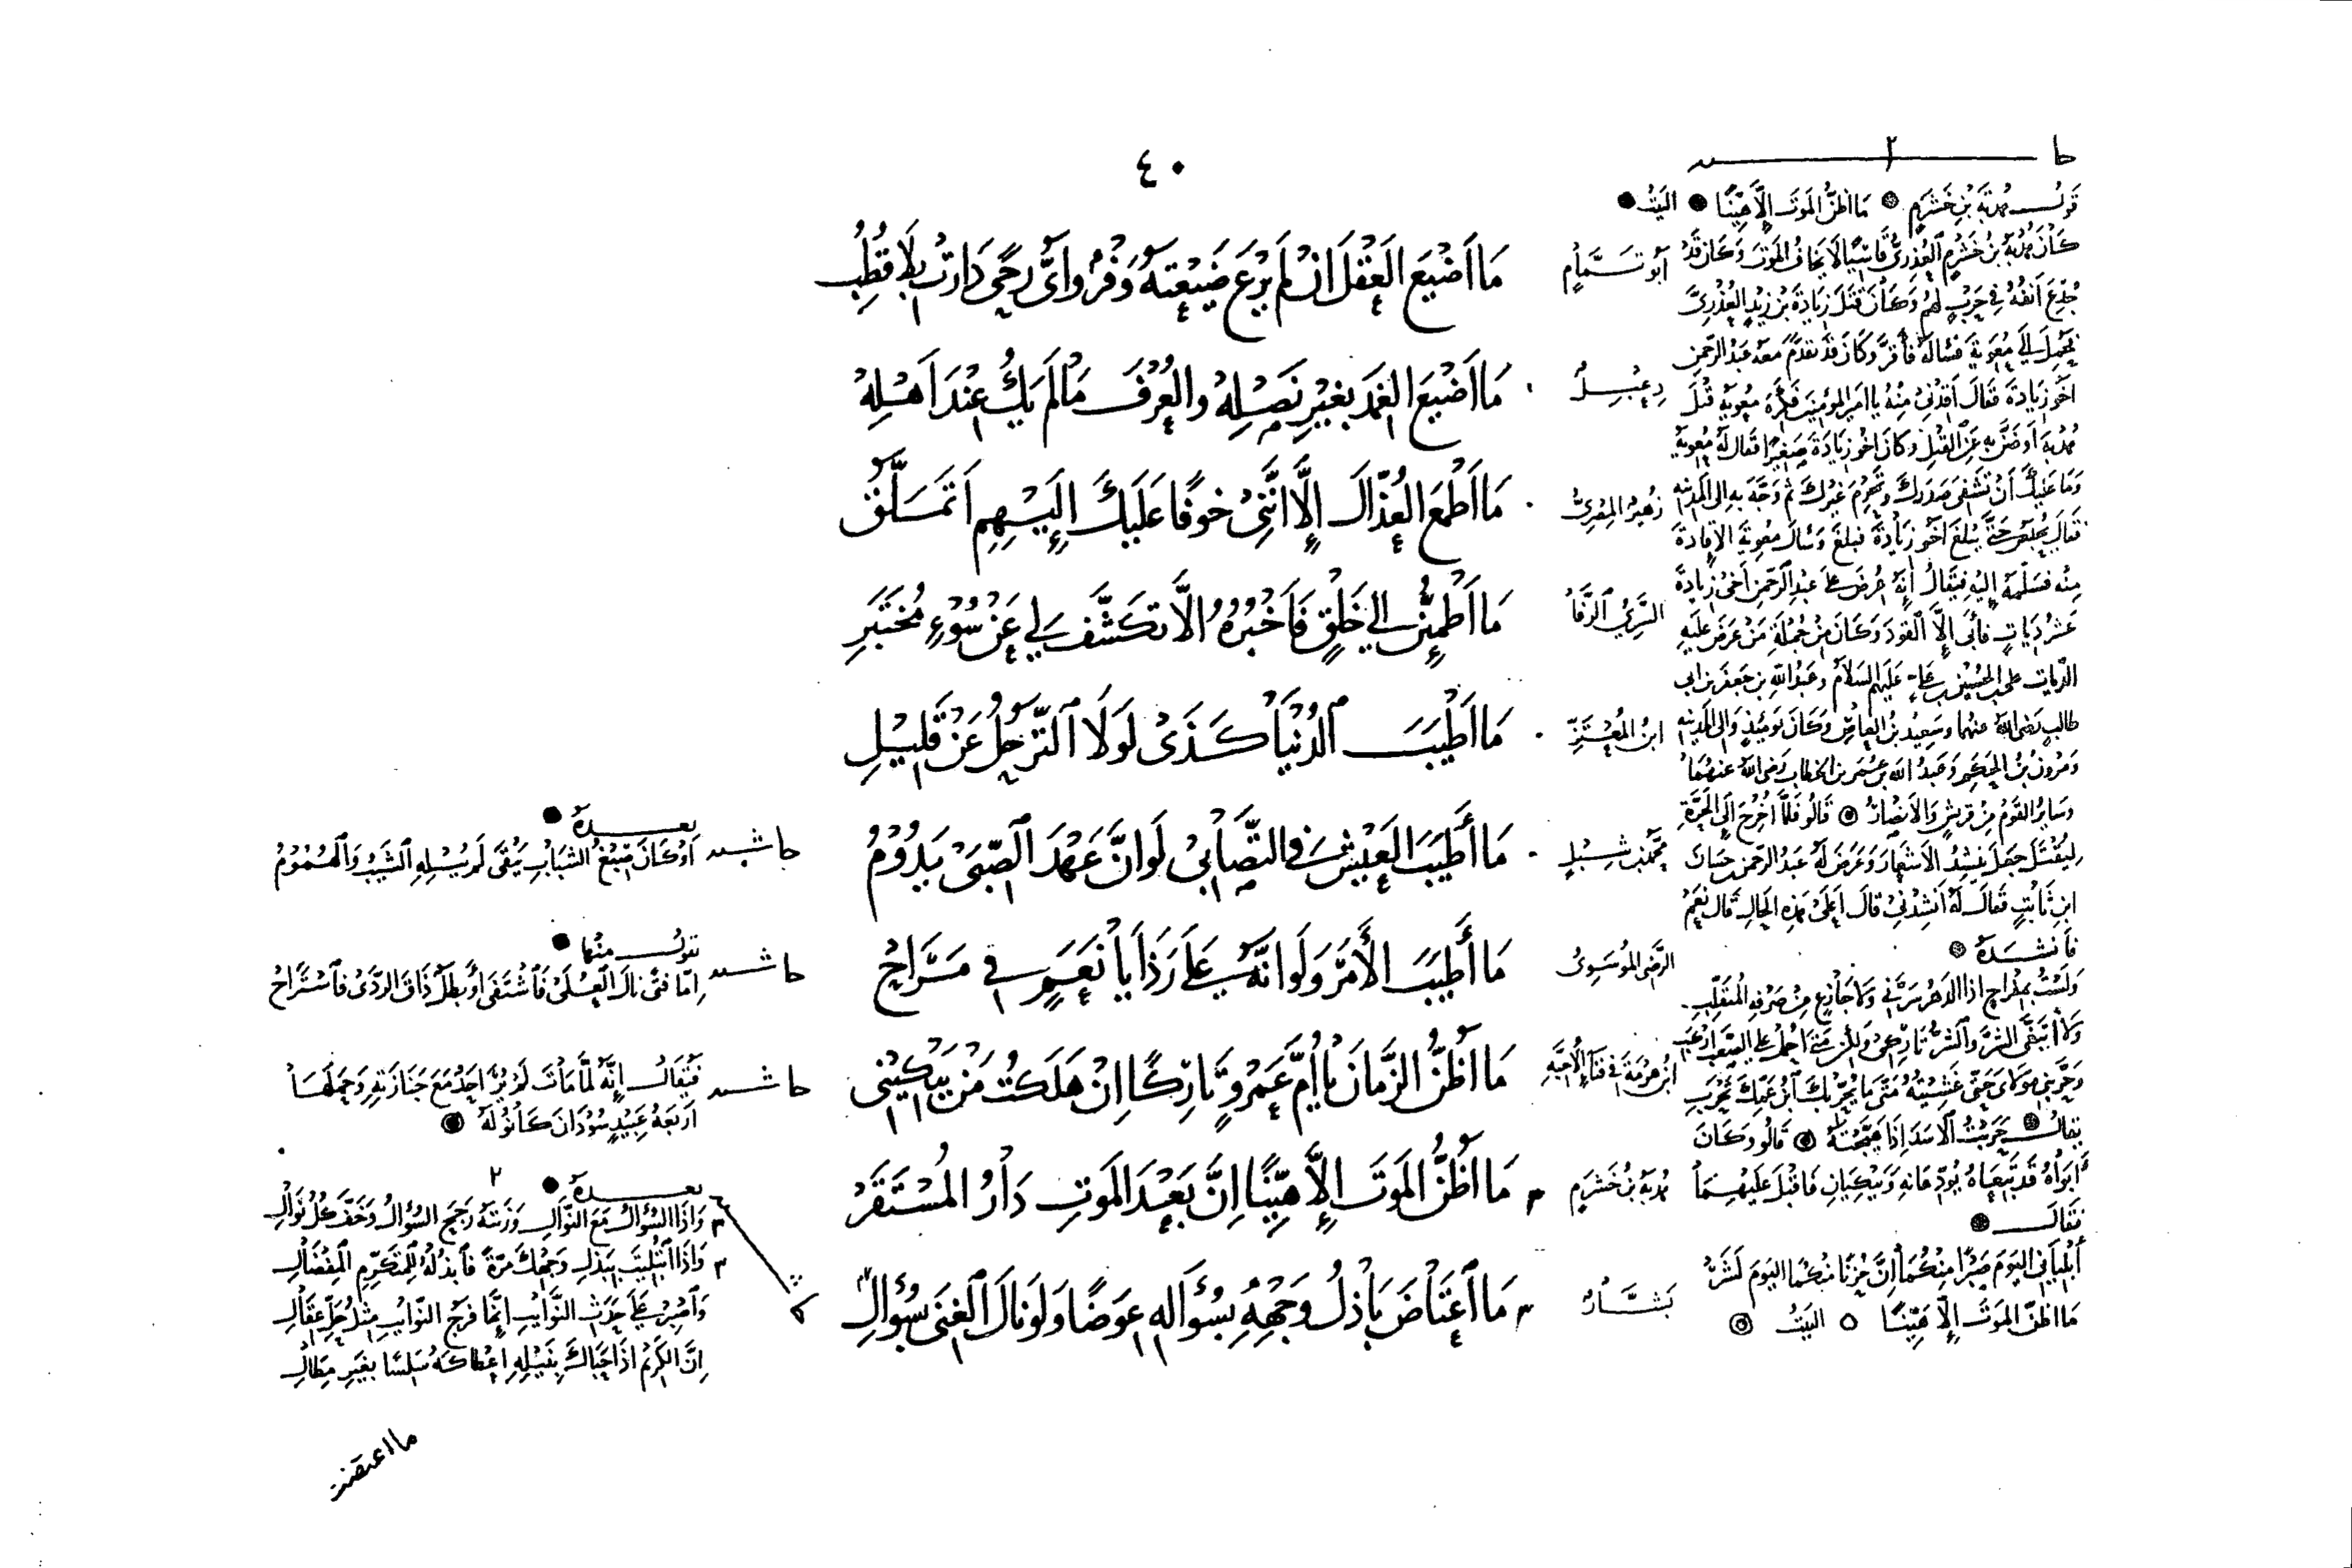 ٤٠
أبو تمام
ما أضيع العقل إن لم يرع ضيعته وفر وأي رحى دارت بلا قطب
دعبل
ما أضيع الغمد بغير نصله والعرف ما لم يك عند أهله
زهير المصري
ما أطمع العذال إلا أنني خوفا عليك إليهم أتملق
السري الرفا
ما أطمئن إلى خلق فأخبره إلا تكشف لي عن سوء مختبر
ابن المعتز
ما أطيب الدنيا كذى لولا الترحل عن قليل
محمد بن شبل
ما أطيب العيش في التصابي لو ان عهد الصبى يدوم
الرضي الموسوي
ما أطيب الأمر ولو انه على رذايا نعم في مراح
ابن هرمة في فناء الأحبه
ما أظن الزمان يا أم عمرو تاركا إن هلكت من يبكيني
هدبة بن خشرم
ما أظن الموت إلا هينا إن بعد الموت دار المستقر
بشار
ما اعتاض باذل وجهه بسؤاله عوضا ولو نال الغنى بسؤال
حا ٢ شية
قول هدبة بن خشرم ما اظن الموت إلا هينا البيت
كان هدبة بن خشرم العذري قاسيا لا يخاف الموت وكان قد
جدع أنفه في حرب لهم وكان قتل زيادة بن زيد العذري
فحمل إلى معوية فسأله فأقر وكان قد تقدم معه عبد الرحمن
اخو زيادة فقال أقدني منه يا امير المؤمنين فكره معوية قتل
هدبة أو ضن به عن القتل وكان اخو زيادة صغيرا فقال له معوية
وما عليك أن تشفي صدرك وتحرم غيرك ثم وجه به إلى المدينه
فقال يحبس حتى يبلغ اخو زيادة فبلغ وسأل معوية الإقادة
منه فسلمه إليه فيقال إنه عرض على عبد الرحمن أخي زيادة
عشر ديات فأبى إلا القود وكان من جملة من عرض عليه
الديات الحسين بن علي عليهم السلام وعبد الله بن جعفر بن ابي
طالب رضي الله عنهما وسعيد بن العاص وكان يومئذ والي المدينه
ومرون بن الحكم وعبد الله بن عمر بن الخطاب رضي الله عنهما
وساير القوم من قريش والانصار قالوا فلما أخرج إلى الحرة
ليقتل جعل ينشد الأشعار وعرض له عبد الرحمن حسان
ابن ثابت فقال له أنشدني قال أعلى هذه الحال قال نعم
فأنشده
ولست بمفراح اذا الدهر سرني ولا جازع من صرفه المتقلب
ولا أتبغى الشر والشر تاركي ولكن متى احمل على الشر اركب
وحربني مولاي حتى غشيته متى ما يحربك ابن عمك تحرب
يقال حربت الأسد إذا هيجته قالوا وكان
أبواه قد تبعاه يودعانه ويبكيان فاقبل عليهما
فقال
أبلياني اليوم صبرا منكما إن حزنا منكما اليوم لشر
ما اظن الموت إلا هينا البيت
حاشية بعده
أو كان صبغ الشباب يبقى لم يبله الشيب والهموم
حاشية يقول منها
إما فتى نال العلى فاشتفى أو بطل ذاق الردى فاستراح
حاشية فيقال إنه لما مات لم ير احد مع جنازته وحملها
أربعة عبيد سودان كانوا له
بعده
وإذا السؤال مع النوال وزنته رجح السؤال وخف كل نوال
وإذا ابتليت ببذل وجهك مرة فابذله للمتكرم المفضال
واصبر على حدث النوايب إنما فرج النوايب مثل حل عقال
إن الكريم اذا حباك بنيله أعطاكه سلسا بغير مطال
ما اعتضد